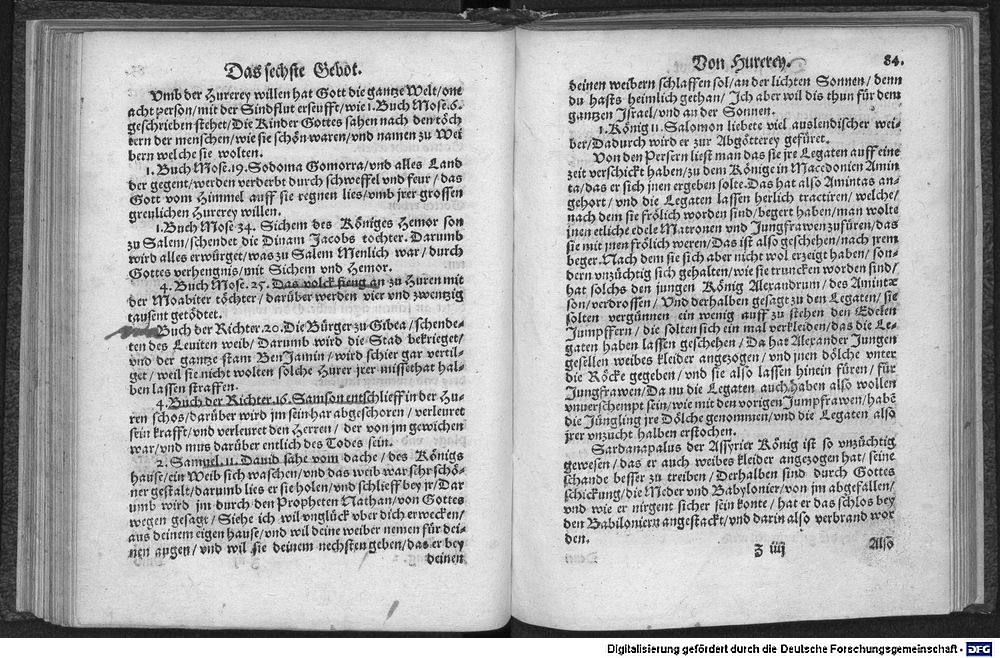 Das sechste Gebot.
Vmb der Hurerey willen hat Gott die gantze Welt/one
acht person/mit der Sindflut erseufft/wie 1. Buch Mose. 6.
geschrieben stehet/Die Kinder Gottes sahen nach den töch
tern der menschen/wie sie schön waren/vnd namen zu Wei
bern welche sie wolten.
1. Buch Mose. 19. Sodoma Gomorra/vnd alles Land
der gegent/werden verderbt durch schweffel vnd feur/das
Gott vom Himmel auff sie regnen lies/vmb jrer grossen
greulichen Hurerey willen.
1. Buch Mose 34. Sichem des Königes Hemor son
zu Salem/schendet die Dinam Jacobs tochter. Darumb
wird alles erwürget/was zu Salem Menlich war/durch
Gottes verhengnis/mit Sichem vnd Hemor.
4. Buch Mose. 25. Das volck fieng an zu Huren mit
der Moabiter töchter/darüber werden vier vnd zwentzig
tausent getödtet.
Buch der Richter. 20. Die Bürger zu Gibea/schende-
ten des Leuiten weib/Darumb wird die Stad bekrieget/
vnd der gantze stam BenJamin/wird schier gar vertil-
get/weil sie nicht wolten solche Hurer jrer missethat hal-
ben lassen straffen.
4. Buch der Richter. 16. Samson entschlieff in der Hu-
ren schos/darüber wird jm sein har abgeschoren/verleuret
sein krafft/vnd verleuret den Herren/der von jm gewichen
war/vnd mus darüber entlich des Todes sein.
2. Samuel. 11. Dauid sahe vom dache/des Königs
hause/ein Weib sich waschen/vnd das weib war sehr schö-
ner gestalt/darumb lies er sie holen/vnd schlieff bey jr/Dar
umb wird jm durch den Propheten Nathan/von Gottes
wegen gesagt/Siehe ich wil vnglück vber dich erwecken/
aus deinem eigen hause/vnd wil deine weiber nemen für dei-
nen augen/vnd wil sie deinem nechsten geben/das er bey
deinen
Von Hurerey. 84.
deinen weibern schlaffen sol/an der lichten Sonnen/denn
du hasts heimlich gethan/Ich aber wil dis thun für dem
gantzen Israel/vnd an der Sonnen.
1. König 11. Salomon liebete viel auslendischer wei-
ber/Dadurch wird er zur Abgötterey gefüret.
Von den Persern liest man das sie jre Legaten auff eine
zeit verschickt haben/zu dem Könige in Macedonien Amin
ta/das er sich jnen ergeben solte. Das hat also Amintas an-
gehort/vnd die Legaten lassen herlich tractiren/welche/
nach dem sie frölich worden sind/begert haben/man wolte
jnen etliche edele Matronen vnd Jungfrawen zufüren/das
sie mit jnen frölich weren/Das ist also geschehen/nach jrem
beger. Nach dem sie sich aber nicht wol erzeigt haben/son-
dern vnzüchtig sich gehalten/wie sie truncken worden sind/
hat solchs den jungen König Alexandrum/des Amintæ
son/verdrossen/Vnd derhalben gesagt zu den Legaten/sie
solten vergünnen ein wenig auff zu stehen den Edelen
Jumpffern/die solten sich ein mal verkleiden/das die Le-
gaten haben lassen geschehen/Da hat Alexander Jungen
gesellen weibes kleider angezogen/vnd jnen dölche vnter
die Röcke gegeben/vnd sie also lassen hinein füren/für
Jungfrawen/Da nu die Legaten auch haben also wollen
vnuerschempt sein/wie mit den vorigen Jumpfrawen/habē
die Jüngling jre Dölche genommen/vnd die Legaten also
jrer vnzucht halben erstochen.
Sardanapalus der Assyrier König ist so vnzüchtig
gewesen/das er auch weibes kleider angezogen hat/seine
schande besser zu treiben/Derhalben sind durch Gottes
schickung/die Meder vnd Babylonier/von jm abgefallen/
vnd wie er nirgent sicher sein konte/hat er das schlos bey
den Babiloniern angestackt/vnd darin also verbrand wor
den.
Z iiij Also
Digitalisierung gefördert durch die Deutsche Forschungsgemeinschaft - DFG